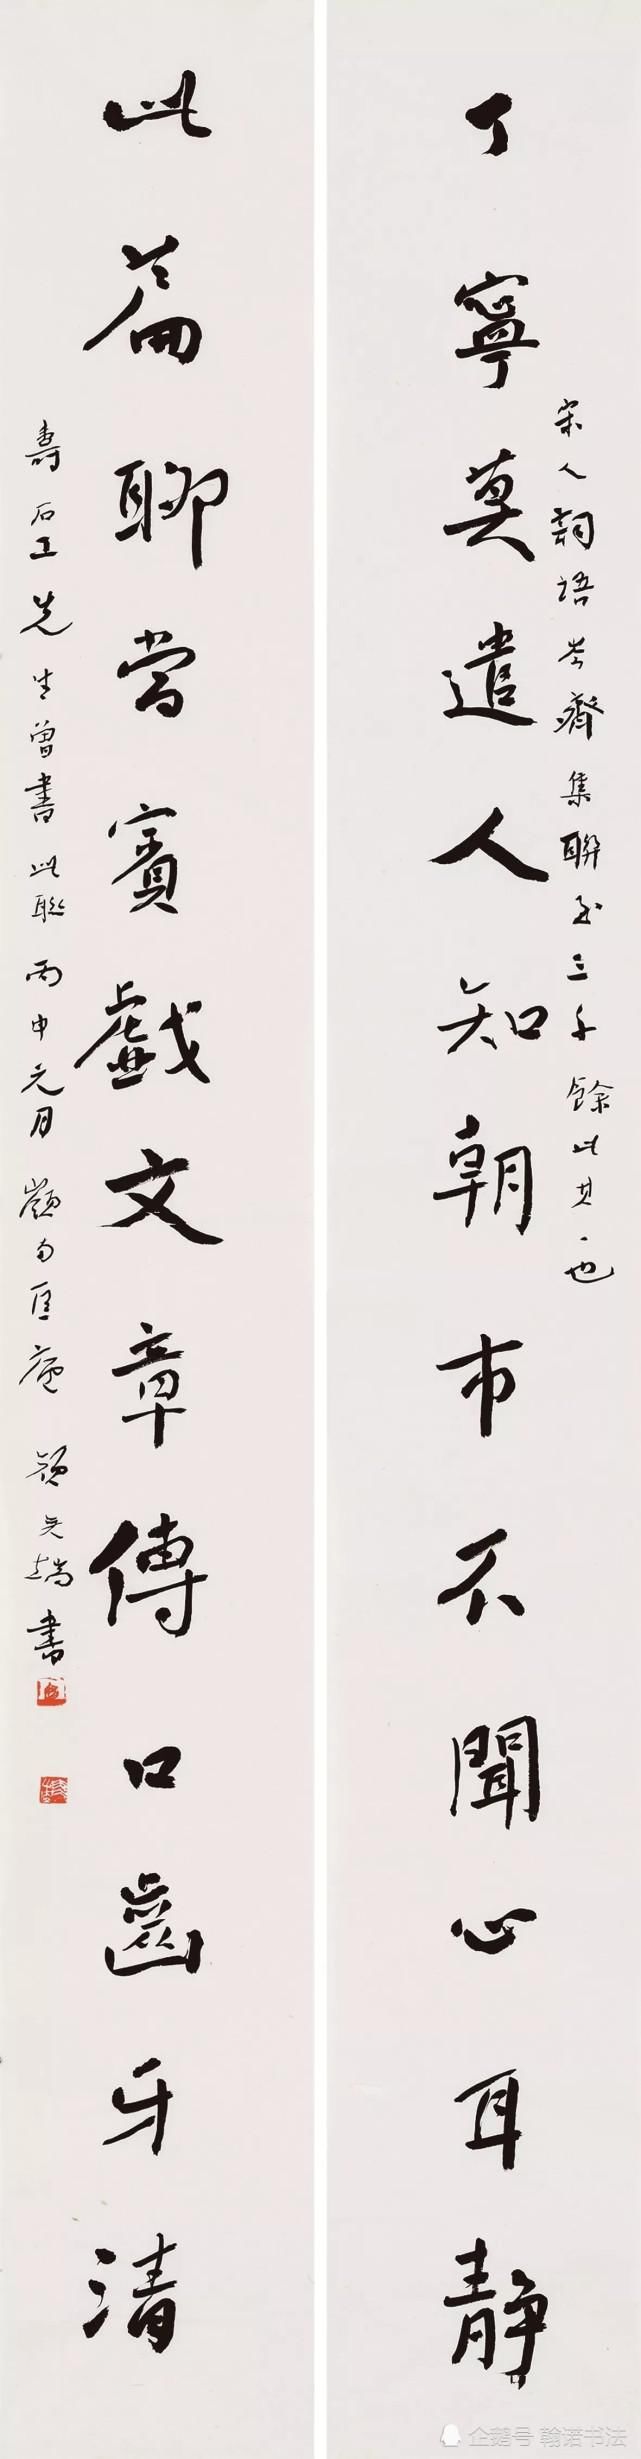 宋人詞語岑齋集聯至三千餘此其一也
丁寧莫遣人知朝市不聞心耳靜
此篇聊當賓戲文章傳口齒牙清
壽石工先生曾書此聯丙申元月嶺南匡庵書
企鹅号 翰诺书法